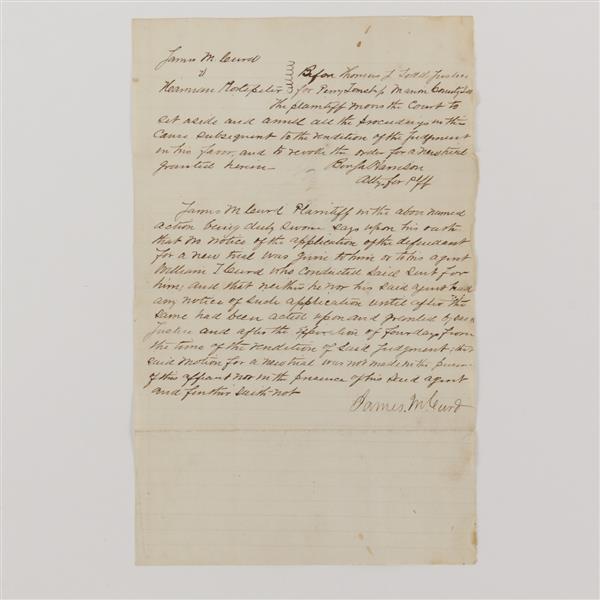 James M Curd
vs
Hearman Rodepeler
Before Thomas J Todd, Justice
for Perry Township Marion County Ind
The plaintiff moves the Court to
set aside and annull all the proceedings in this
Cause subsequent to the rendition of the Judgment
in his favor, and to revoke the order for a new trial
granted herein—
Benja Harrison
Atty for Plff
James M Curd Plaintiff in the above named
action being duly sworn says upon his oath
that no notice of the application of the defendant
for a new trial was given to him or to his agent
William T Curd who conducted said suit for
him; and that neither he nor his said agent had
any notice of such application until after the
same had been acted upon and granted by
Justice and after the expiration of four days from
the time of the rendition of said Judgment; that
said motion for a new trial was not made in the
of this affiant nor in the presence of his said agent
and further saith not
James. M. Curd